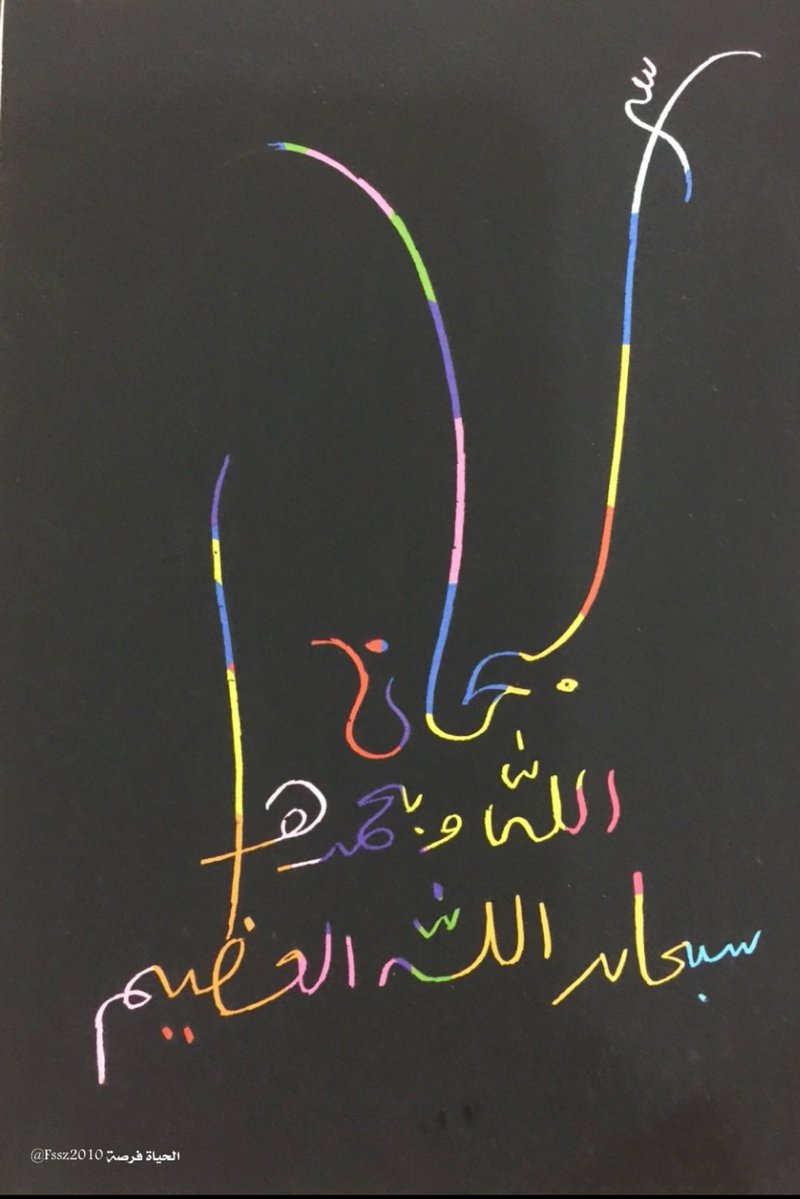 سبحان
الله وبحمده
سبحان الله العظيم
@Fssz2010 الحياة فرصة